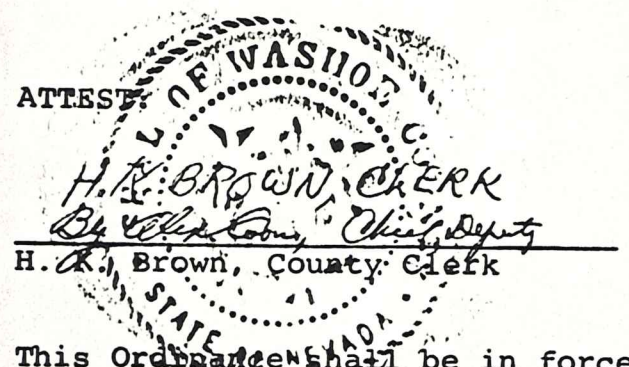 ATTEST:
SEAL OF WASHOE CO
H.K. BROWN, CLERK
By Alex Coon, Chief Deputy
H. K. Brown, County Clerk
STATE OF NEVADA
This Ordinance shall be in force